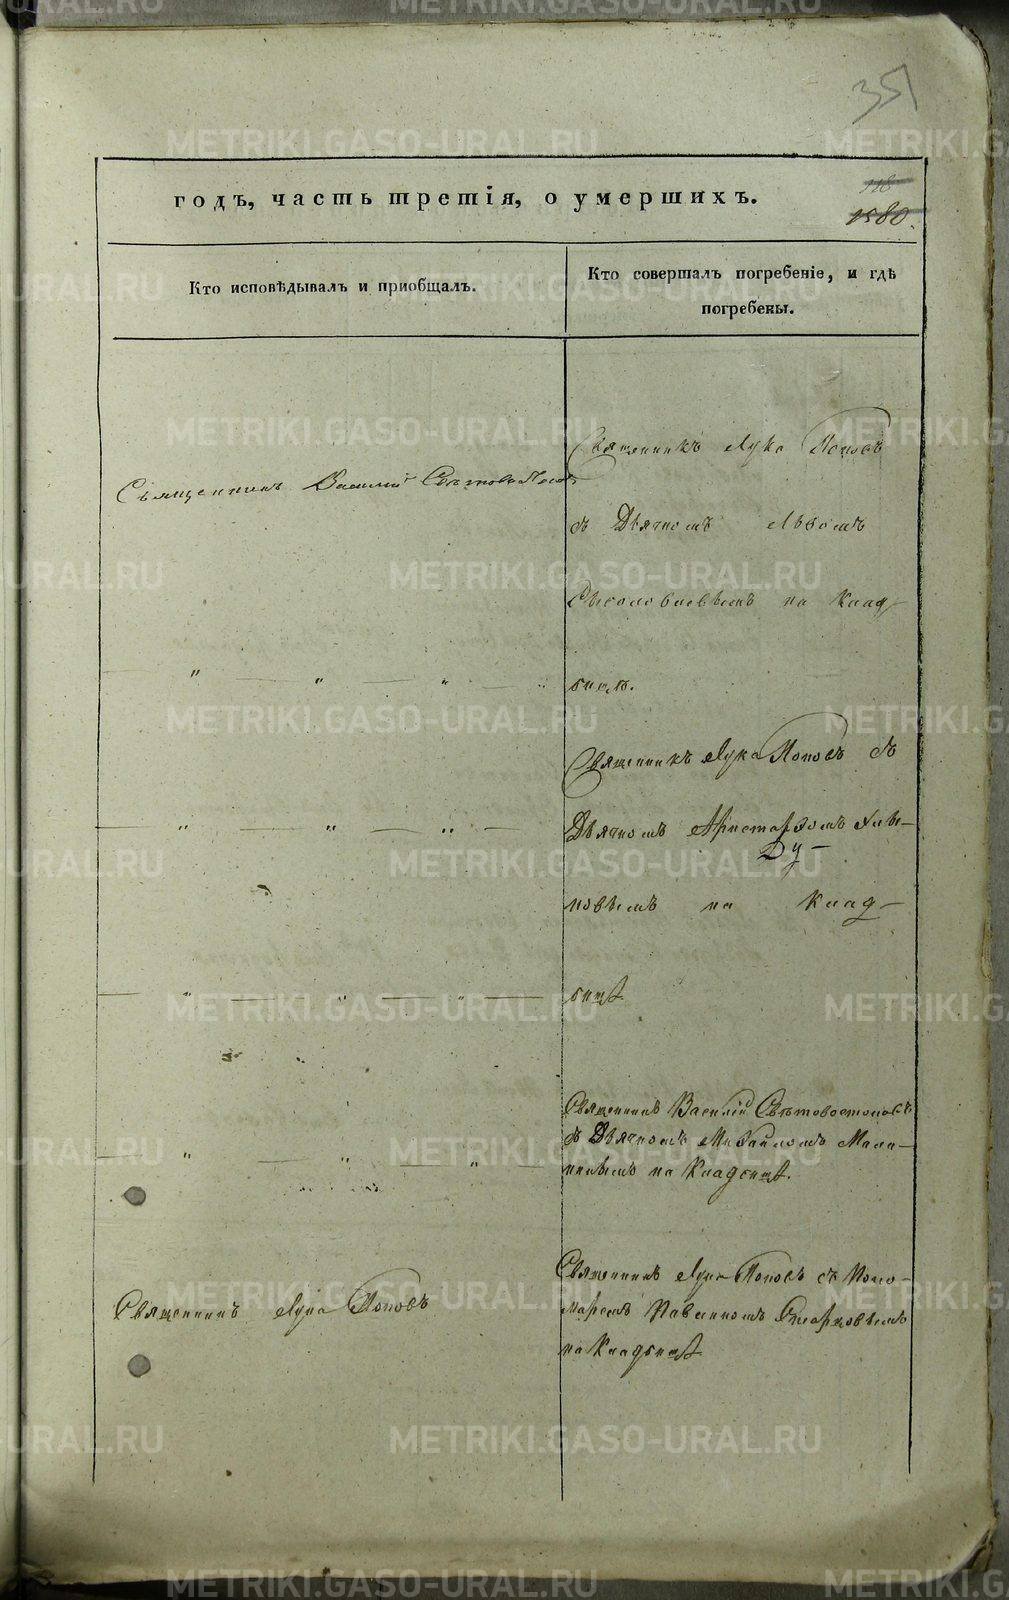 351
годъ, часть третія, о умершихъ.
118
1580.
Кто исповѣдывалъ и приобщалъ.
Кто совершалъ погребеніе, и гдѣ
погребены.
Священникъ Лука Поповъ
Священникъ Василій
съ Дьячкомъ Львомъ
на клад-
бищѣ.
Священникъ Лука Поповъ съ
Дьячкомъ Аристархомъ
новымъ на клад-
бищѣ
Священникъ Василій Свѣтовостоковъ
съ Дьячкомъ Михайломъ Мали-
нинымъ на Кладбищѣ.
Священникъ Лука Поповъ съ Поно-
Священникъ Лука Поповъ
маремъ Павлиномъ
на Кладбищѣ
METRIKI.GASO-URAL.RU